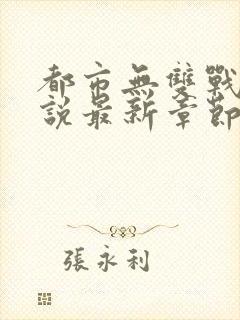 都市無雙戰
說最新章節
張永利